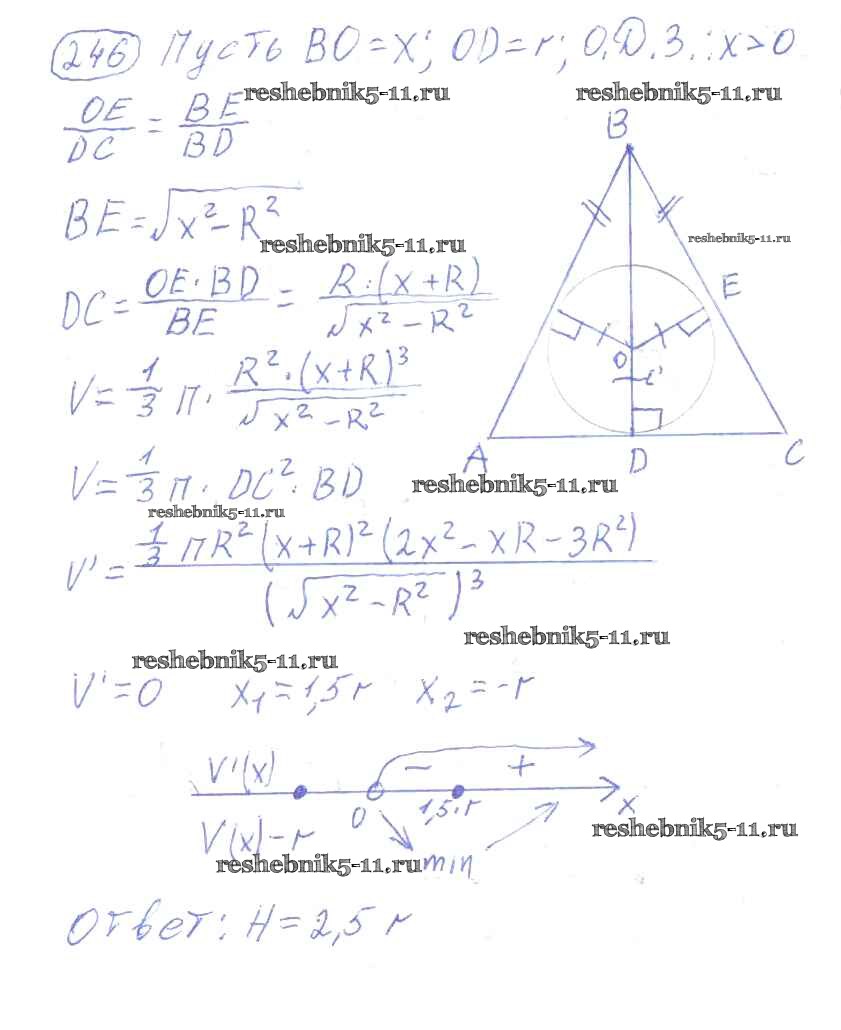 246 Пусть BO = x; OD = r; О.Д.З.: x > 0
reshebnik5-11.ru reshebnik5-11.ru
OE/DC = BE/BD
B
BE = √(x² - R²)
reshebnik5-11.ru
reshebnik5-11.ru
E
DC = OE · BD / BE = R · (x + R) / √(x² - R²)
O
r
V = 1/3 π · R² · (x + R)³ / √(x² - R²)
A D C
V = 1/3 π · DC² · BD
reshebnik5-11.ru
reshebnik5-11.ru
V' = 1/3 πR² (x + R)² (2x² - xR - 3R²) / (√(x² - R²))³
reshebnik5-11.ru
reshebnik5-11.ru
V' = 0 x₁ = 1,5 r x₂ = -r
V'(x) - +
0 1,5·r x
V(x) - r
reshebnik5-11.ru
reshebnik5-11.ru
min
Ответ: H = 2,5 r